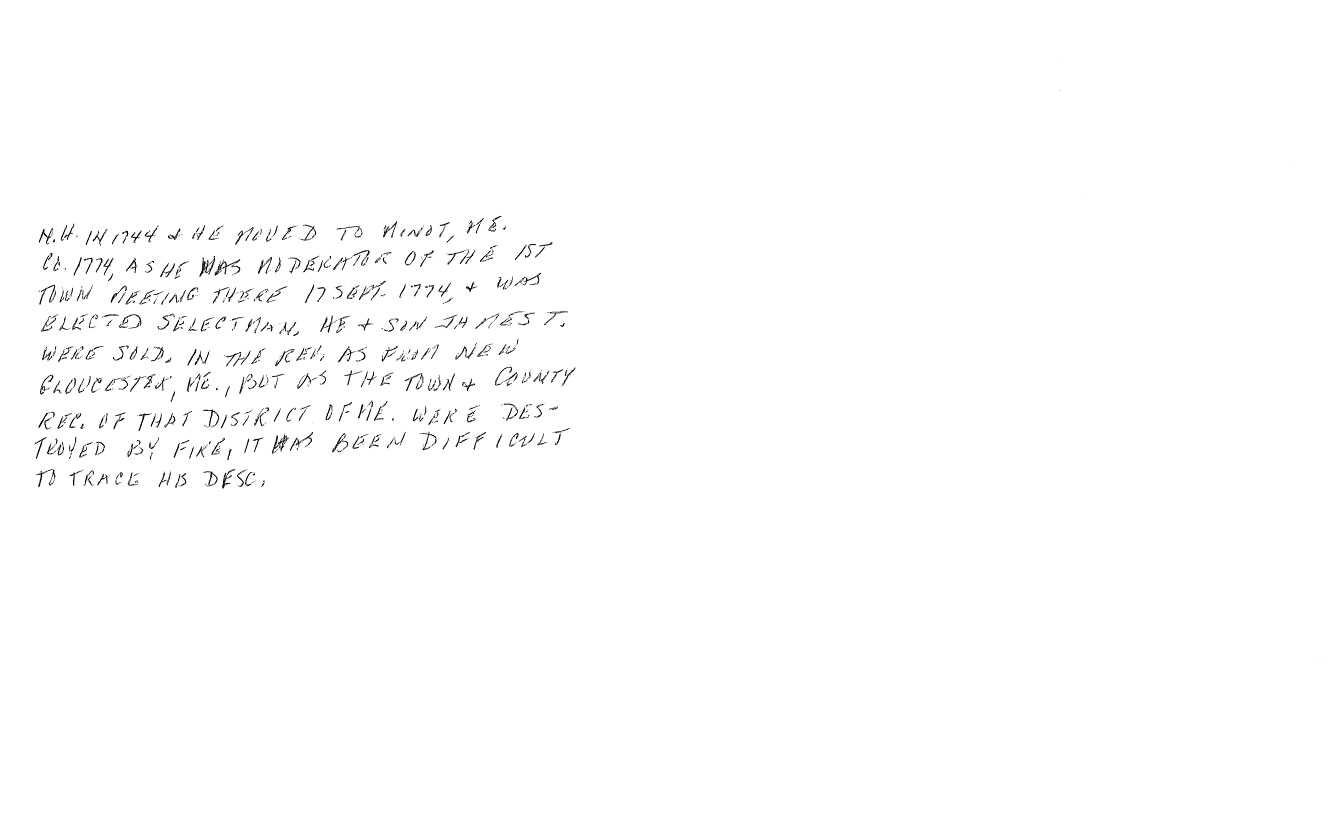 N.H. IN 1744 & HE MOVED TO MINOT, ME.
CA. 1774, AS HE WAS MODERATOR OF THE 1ST
TOWN MEETING THERE 17 SEPT. 1774, & WAS
ELECTED SELECTMAN. HE & SON JAMES T.
WERE SOLD. IN THE REV. AS FROM NEW
GLOUCESTER, ME., BUT AS THE TOWN & COUNTY
REC. OF THAT DISTRICT OF ME. WERE DES-
TROYED BY FIRE, IT HAS BEEN DIFFICULT
TO TRACE HIS DESC.